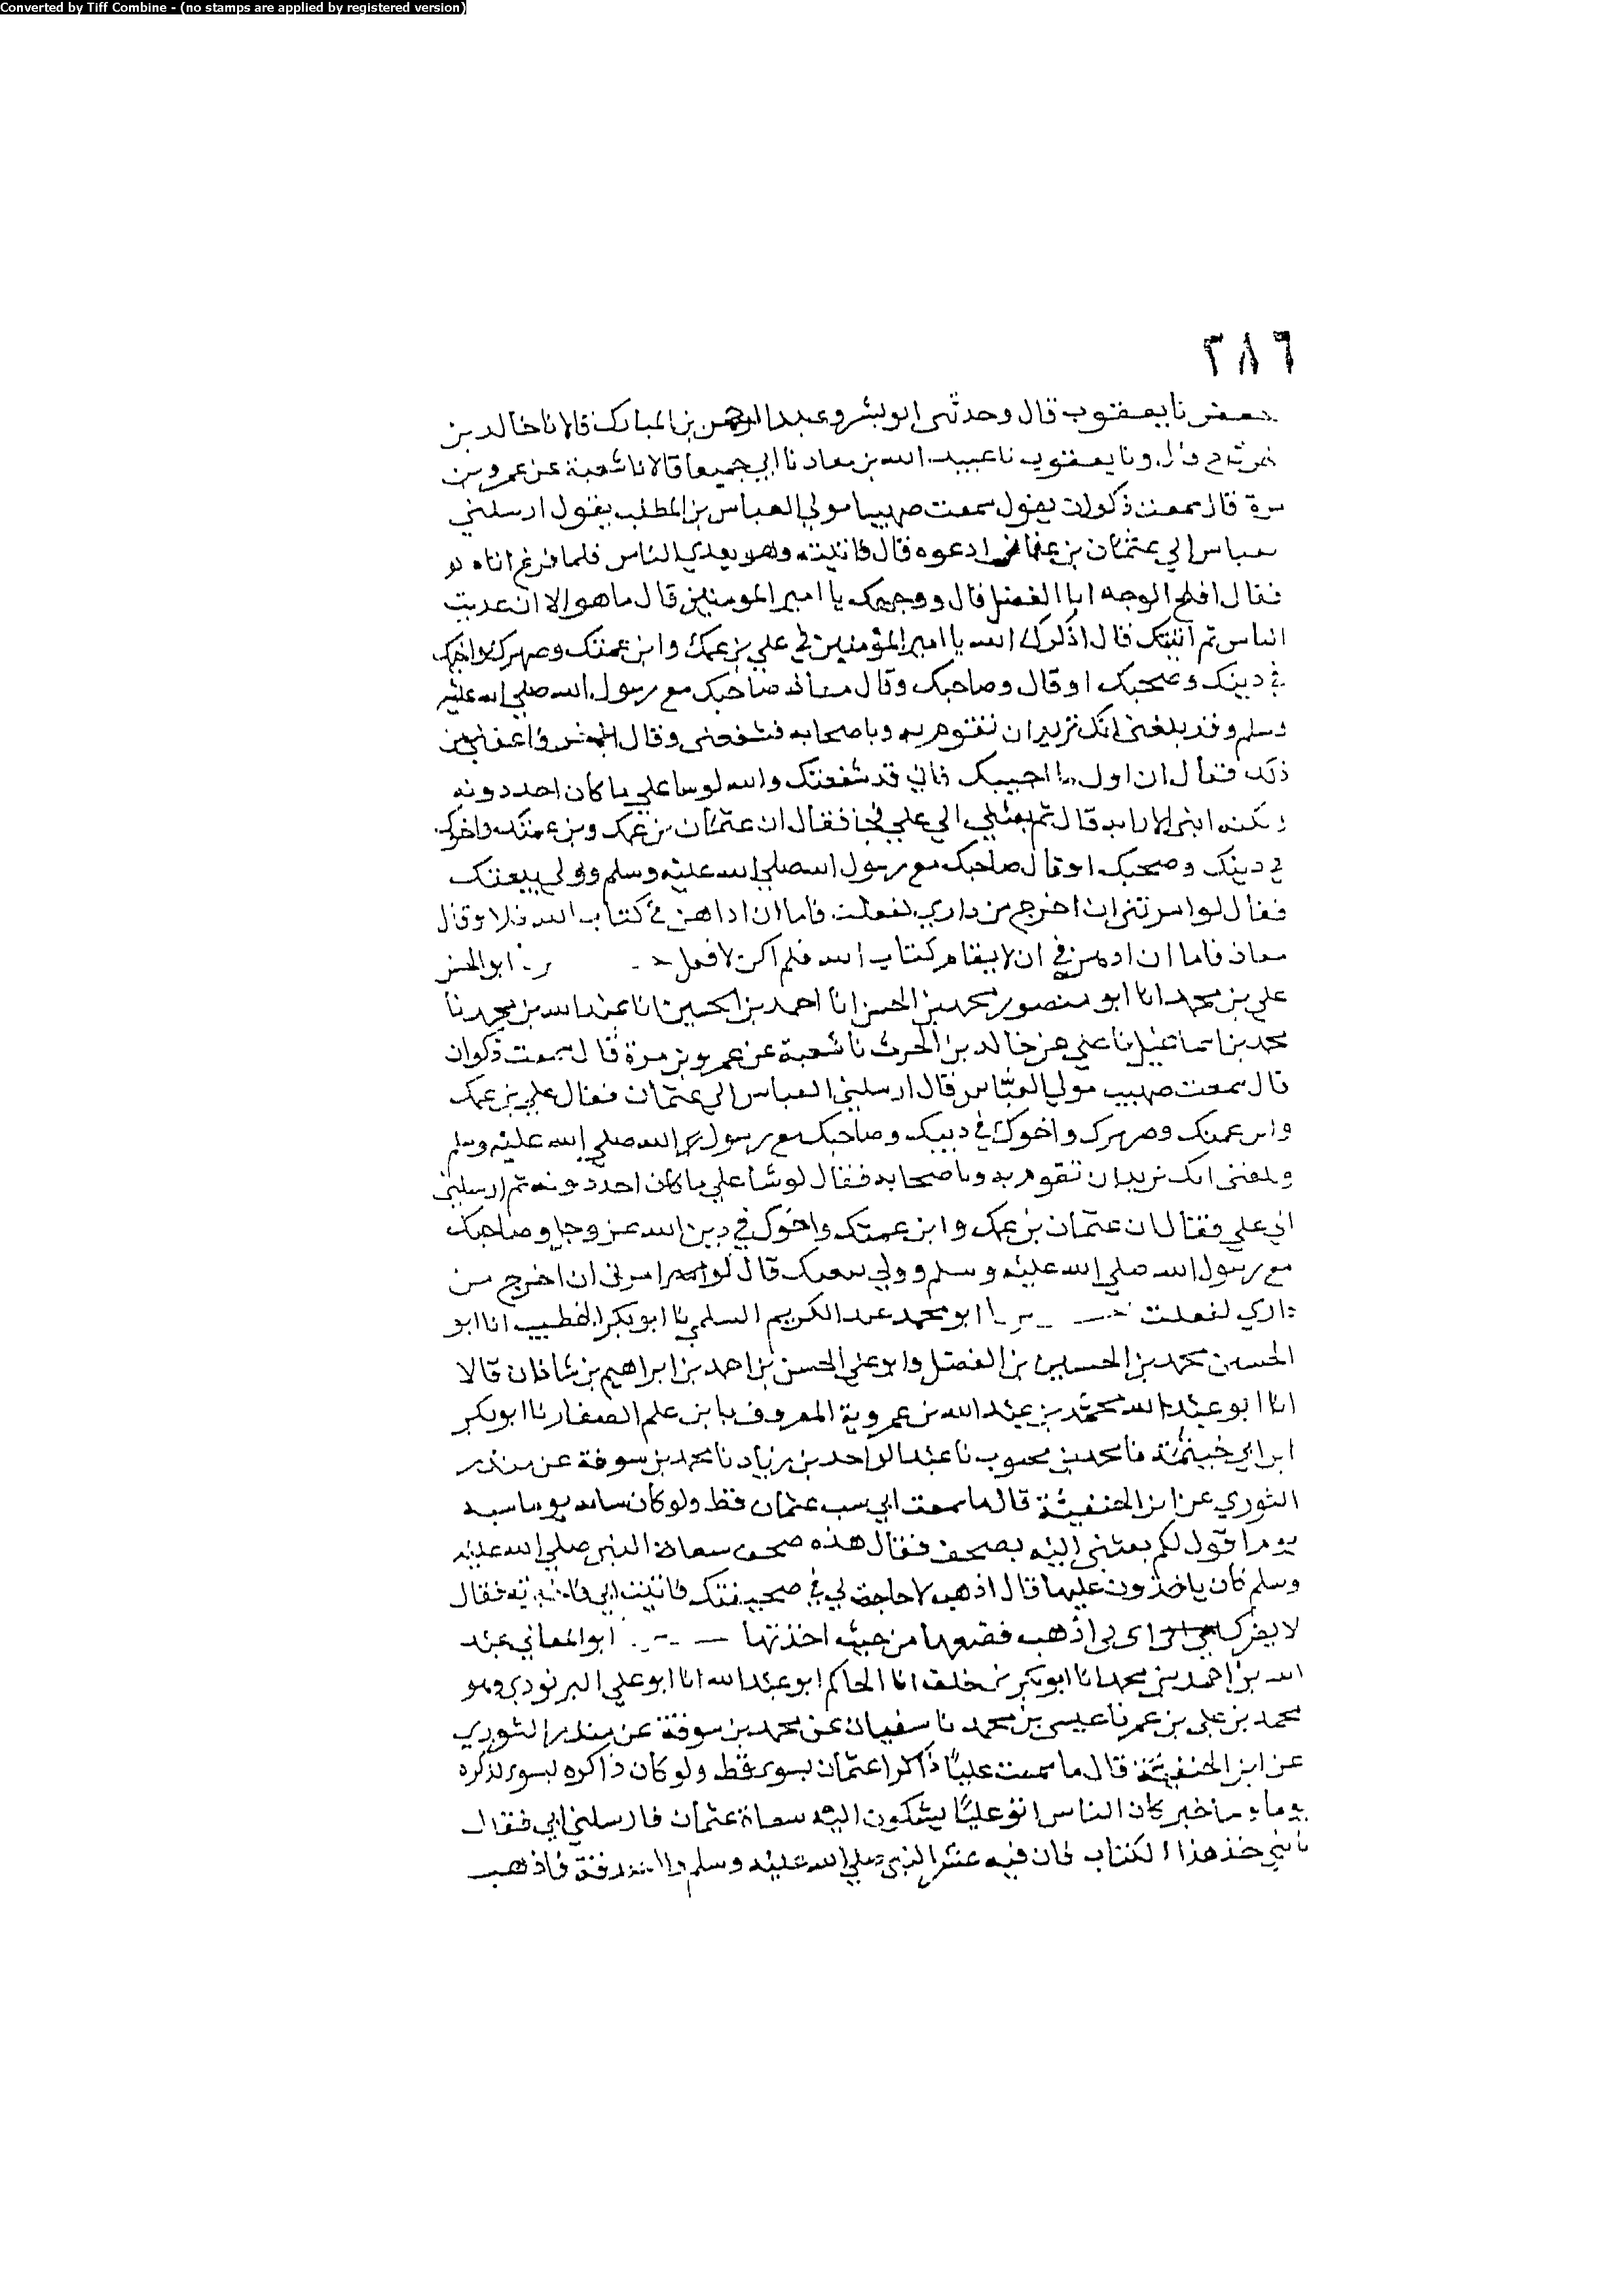 Converted by Tiff Combine - (no stamps are applied by registered version)
٣٨٦
جعفر نا يعقوب قال وحدثني ابو بشر وعبد الرحمن بن المبارك قالا نا خالد بن
ونا يعقوب نا عبيد الله بن معاد نا ابي جميعا قالا نا شعبة عن عمرو بن
مرة قال سمعت ذكوان يقول سمعت صهيبا مولي العباس بن المطلب يقول ارسلني
عباس الي عثمان بن عفان ادعوه قال فاتيته وهو يغدي الناس فلما فرغ اتاه
فقال افلح الوجه ابا الفضل قال ووجهك يا امير المومنين قال ما هو الا ان غديت
الناس ثم اتيتك قال اذكرك الله يا امير المؤمنين في علي بن عمك وابن عمتك وصهرك واخيك
في دينك وصحبك او قال وصاحبك وقال معاذ صاحبك مع رسول الله صلي الله عليه
وسلم وقد بلغني انك تريد ان تقوم به وباصحابه فشفعني وقال فاعفني من
ذلك فقال ان اول ما اجيبك فاني قد شفعتك والله لو شا علي ما كان احد دونه
ولكنه ابي الا رايه قال ثم بعثني الي علي فجا فقال ان عثمان بن عمك وبن عمتك واخوك
في دينك وصحبك او قال صاحبك مع رسول الله صلي الله عليه وسلم وولي بيعتك
فقال لو امرتني ان اخرج من داري لفعلت فاما ان اداهن في كتاب الله فلا وقال
معاذ فاما ان ادهن في ان لا يقام كتاب الله فلم اكن لافعل ابو الحسن
علي بن محمد انا ابو منصور محمد بن الحسن انا احمد بن الحسين انا عبد الله بن محمد نا
محمد بن اسماعيل نا علي عن خالد بن الحرث نا شعبة عن عمرو بن مرة قال سمعت ذكوان
قال سمعت صهيب مولي العباس قال ارسلني العباس الي عثمان فقال علي بن عمك
وابن عمتك وصهرك واخوك في دينك وصاحبك مع رسول الله صلي الله عليه وسلم
وبلغني انك تريد ان تقوم به وباصحابه فقال لو شا علي ما كان احد دونه ثم ارسلني
الي علي فقال ان عثمان بن عمك وابن عمتك واخوك في دين الله عز وجل وصاحبك
مع رسول الله صلي الله عليه وسلم وولي بيعتك قال لو امرني ان اخرج من
داري لفعلت ابو محمد عبد الكريم السلمي نا ابو بكر الخطيب انا ابو
الحسين محمد بن الحسين بن الفضل وابو علي الحسن بن احمد بن ابراهيم بن شاذان قالا
انا ابو عبد الله محمد بن عبد الله بن عمروية المعروف بابن علم الصفار نا ابو بكر
ابن ابي خيثمة نا محمد بن محبوب نا عبد الواحد بن زياد نا محمد بن سوقة عن منذر
الثوري عن ابن الحنفية قال ما سمعت ابي سب عثمان قط ولو كان سابه يوما سبه
يوما قول لكم بعثني اليه بصحف فقال هذه صحف سعاة النبي صلي الله عليه
وسلم كان ياخذون عليها قال اذهب لا حاجة لي في صحيفتك فاتيت ابي فاخبرته فقال
لا يضرك اذهب فضعها من حيث اخذتها ابو المعالي عبد
الله بن احمد بن محمد انا ابو بكر بن خلف انا الحاكم ابو عبد الله انا ابو علي البرنودي وهو
محمد بن علي بن عمر نا عيسى بن محمد نا سفيان عن محمد بن سوقة عن منذر الثوري
عن ابن الحنفية قال ما سمعت عليا ذاكرا عثمان بسوء قط ولو كان ذاكره بسوء لذكره
يوما خبر كان الناس اتو عليا يشكون اليه سعاة عثمان فارسلني ابي فقال
يا بني خذ هذا الكتاب فان فيه عشر النبي صلي الله عليه وسلم والصدقة فاذهب